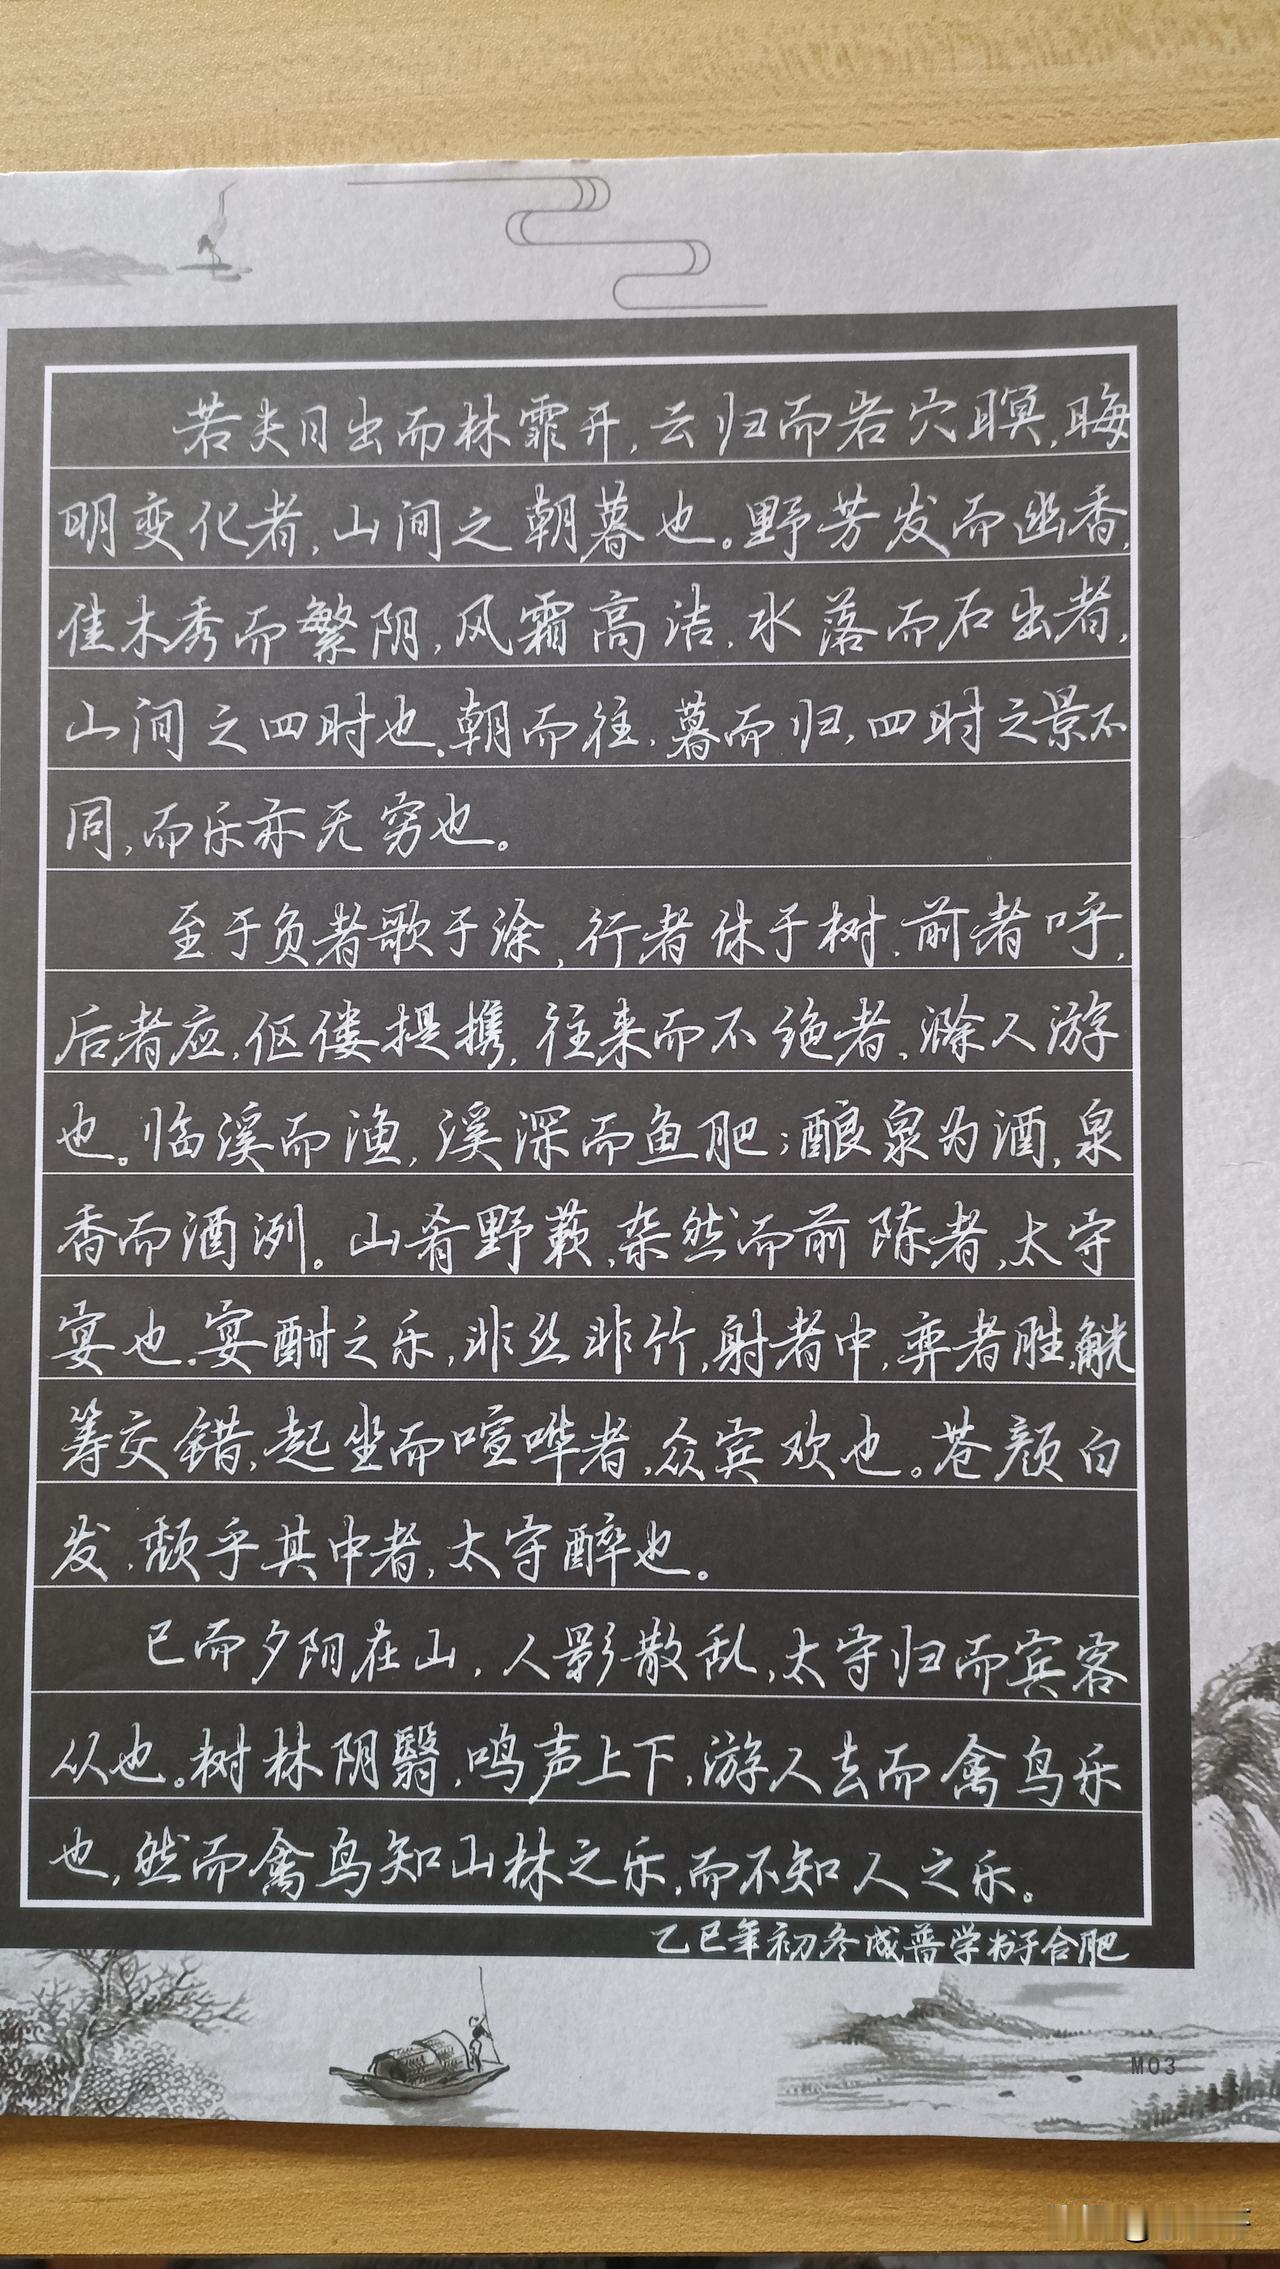 若夫日出而林霏开，云归而岩穴暝，晦
明变化者，山间之朝暮也。野芳发而幽香，
佳木秀而繁阴，风霜高洁，水落而石出者，
山间之四时也。朝而往，暮而归，四时之景不
同，而乐亦无穷也。
至于负者歌于涂，行者休于树，前者呼，
后者应，伛偻提携，往来而不绝者，滁人游
也。临溪而渔，溪深而鱼肥；酿泉为酒，泉
香而酒洌。山肴野蔌，杂然而前陈者，太守
宴也。宴酣之乐，非丝非竹，射者中，弈者胜，觥
筹交错，起坐而喧哗者，众宾欢也。苍颜白
发，颓乎其中者，太守醉也。
已而夕阳在山，人影散乱，太守归而宾客
从也。树林阴翳，鸣声上下，游人去而禽鸟乐
也，然而禽鸟知山林之乐，而不知人之乐。
乙巳年初冬成普学书于合肥
M03